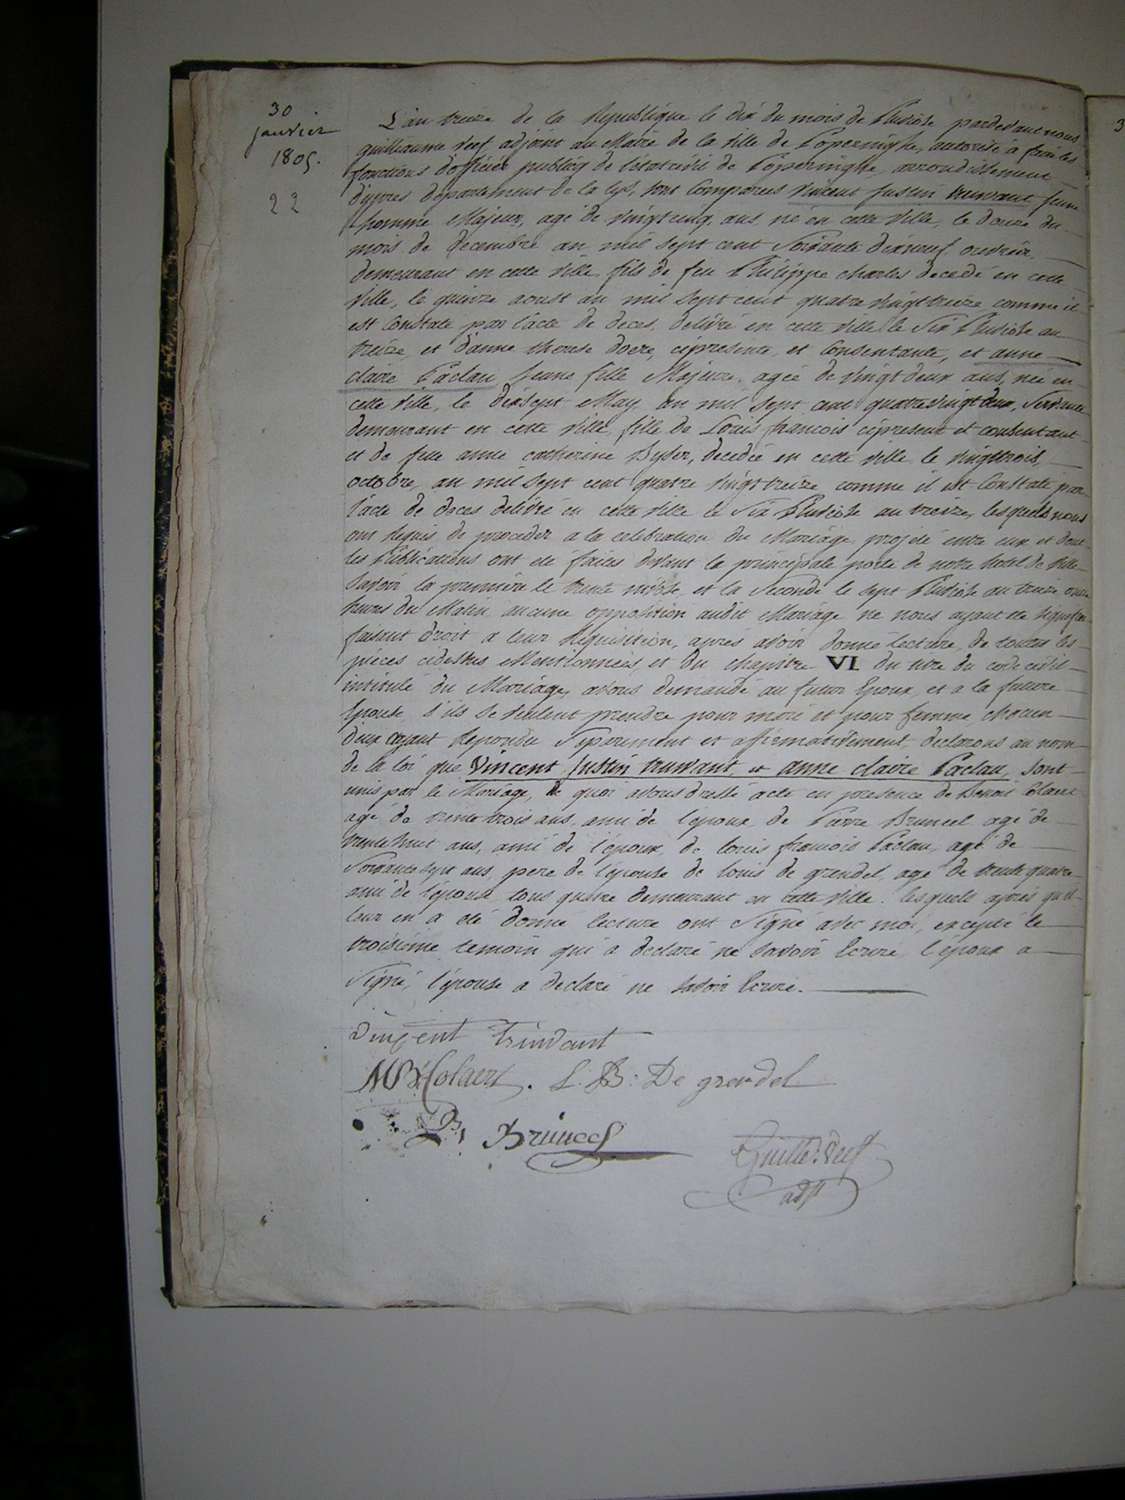 30
janvier
1805.
22
L'an treize de la Republique le dix du mois de Pluviose pardevant nous
guillaume Veef adjoint au Maire de la ville de Poperinghe, autorisé a faire les
fonctions d'officier public de l'etat civil de Poperinghe, arrondissement
d'ypres departement de la Lys, sont comparus Vincent Justin truwant jeune
homme Majeur, agé de vingtcinq ans, né en cette ville, le douze du
mois de decembre an mil sept cent soixante dixneuf, ouvrier
demeurant en cette ville, fils de feu Philippe charles decedé en cette
ville, le quinze aoust an mil sept cent quatre vingt treize comme il
est Constaté par l'acte de deces, delivré en cette ville le six Pluviose an
treize, et d'anne therese doere, cipresente, et Consentante, et anne
claire Paclau, jeune fille Majeure, agée de vingt deux ans, née en
cette ville, le dixsept May an mil sept cent quatre vingt deux, servante
demeurant en cette ville, fille de Louis francois cipresent et consentant
et de feue anne catherine , decedée en cette ville le vingttrois
octobre, an mil sept cent quatre vingt treize comme il est Constaté par
l'acte de deces delivré en cette ville le six Pluviose an treize, lesquels nous
ont requis de proceder a la celebration du Mariage projeté entre eux et dont
les Publications ont été faites devant la principale porte de notre hotel de ville
savoir la premiere le trente nivose, et la seconde le sept Pluviose an treize onze
heures du Matin aucune opposition audit Mariage ne nous ayant été signifiée
faisant droit a leur requisition, apres avoir donné lecture de toutes les
pieces cidessus Mentionnées, et du chapitre VI du titre du code civil
intitulé du Mariage, avons demandé au futur Epoux, et a la future
Epouse s'ils se veulent prendre pour mari et pour femme, chacun
d'eux ayant repondu separement et affirmativement, declarons au nom
de la loi que Vincent Justin truwant, et anne claire Paclau, sont
unis par le Mariage, de quoi avons dressé acte en presence de Benoit Colaert
agé de trente trois ans, ami de l'epoux, de Pierre Bruneel agé de
trentehuit ans, ami de l'époux, de louis francois Paclau, agé de
Soixantesept ans, pere de l'épouse de louis de grendel, agé de trente quatre
ami de l'épouse tous quatre demeurant en cette ville. lesquels apres qu'il
leur en a été donné lecture ont signé avec moi, excepté le
troisieme temoin qui a declaré ne savoir Ecrire, l'époux a
signé, l'épouse a declaré ne savoir Ecrire.
vincent truwant
Colaert. L. B. De grendel
P. Bruneel
Guille. Veef
adjt